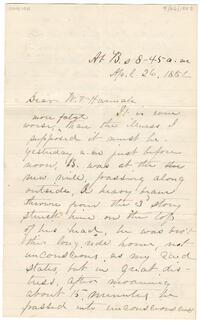 At B.s 8-45 a.m
April 26, 1882
Dear W. & Hannah
It is even
more fatal
worse, than the illness I
supposed it must be.
yesterday a.m just before
noon, B. was at the
new mill, passing along
outside, a heavy
thrown from the 3d story
struck him on the top
of his head, he was bro't
this long, ride home, not
unconscious, as my
states, but in great dis-
tress, after moaning
about 15 minutes he
passed into unconsciousness